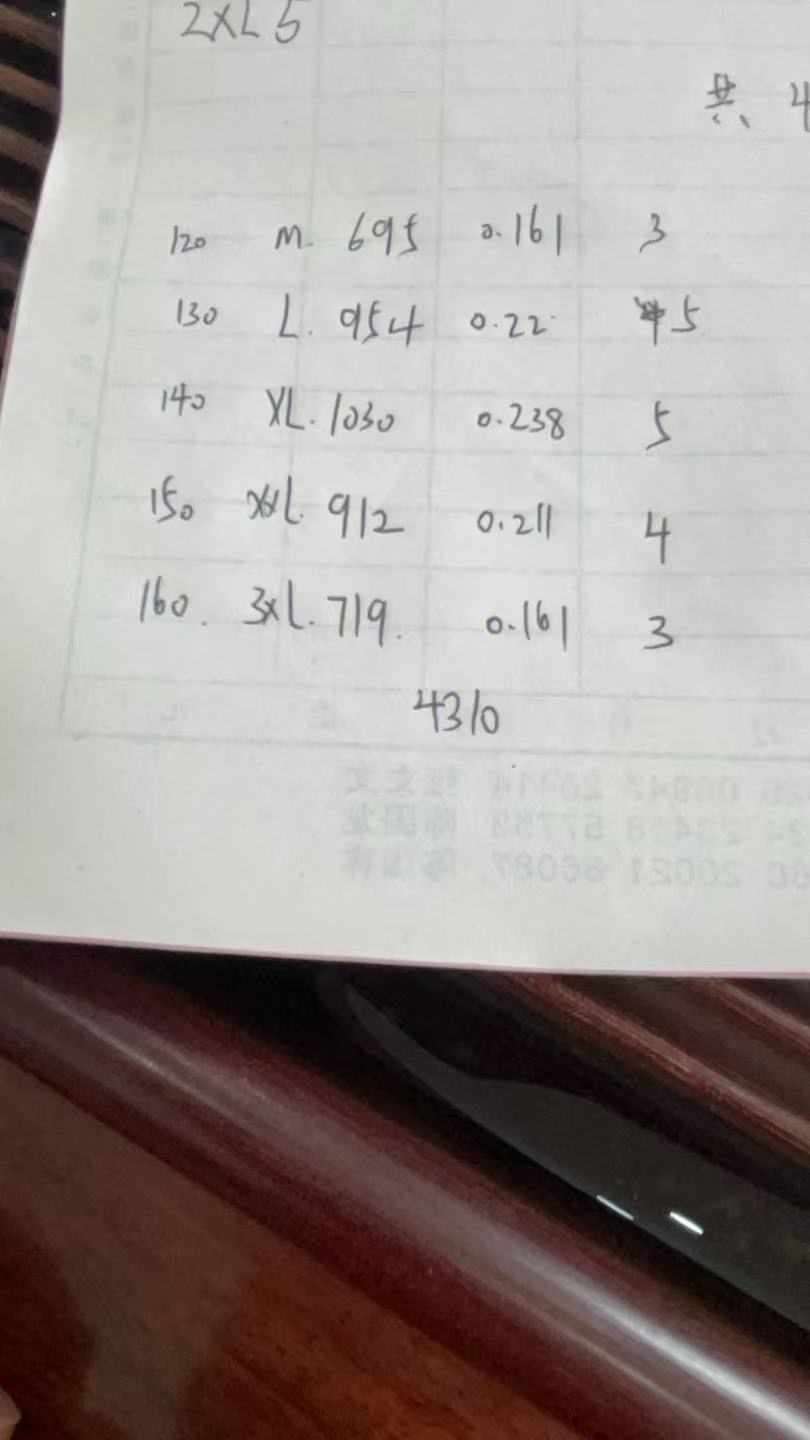 2XL 5
共 4
120 M. 695 0.161 3
130 L. 954 0.22 5
140 XL. 1030 0.238 5
150 XXL. 912 0.211 4
160. 3XL. 719. 0.161 3
4310